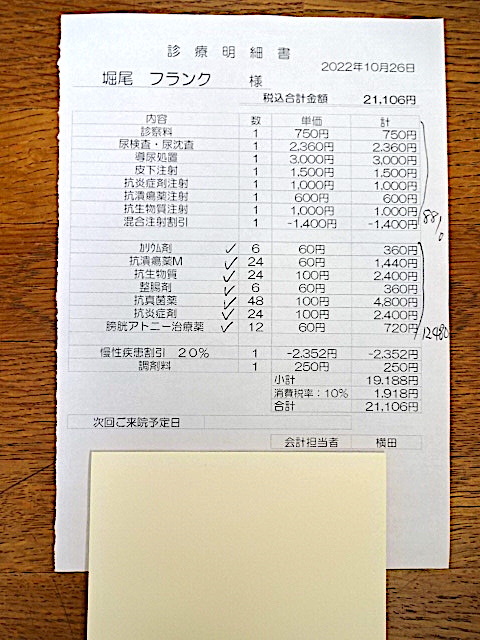 診療明細書
2022年10月26日
堀尾 フランク 様
税込合計金額 21,106円
内容 数 単価 計
診察料 1 750円 750円
尿検査・尿沈査 1 2,360円 2,360円
導尿処置 1 3,000円 3,000円
皮下注射 1 1,500円 1,500円
抗炎症剤注射 1 1,000円 1,000円
抗潰瘍薬注射 1 600円 600円
抗生物質注射 1 1,000円 1,000円
混合注射割引 1 -1,400円 -1,400円
8810
カリウム剤 ✓ 6 60円 360円
抗潰瘍薬M ✓ 24 60円 1,440円
抗生物質 ✓ 24 100円 2,400円
整腸剤 ✓ 6 60円 360円
抗真菌薬 ✓ 48 100円 4,800円
抗炎症剤 ✓ 24 100円 2,400円
膀胱アトニー治療薬 ✓ 12 60円 720円
12480
慢性疾患割引 20% 1 -2,352円 -2,352円
調剤料 1 250円 250円
小計 19,188円
消費税率：10% 1,918円
合計 21,106円
次回ご来院予定日
会計担当者 横田